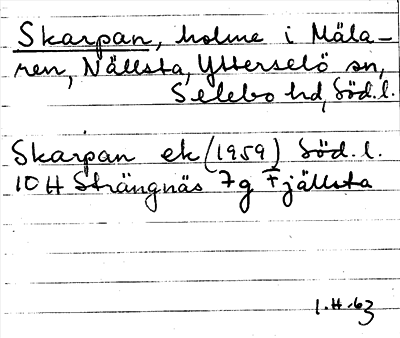 Skarpan, holme i Mäla-
ren, Nällsta, Ytterselö sn,
Selebo hd, Söd.l.
Skarpan ek (1959) Söd.l.
10 H Strängnäs 7g Fjällsta
1.H.63